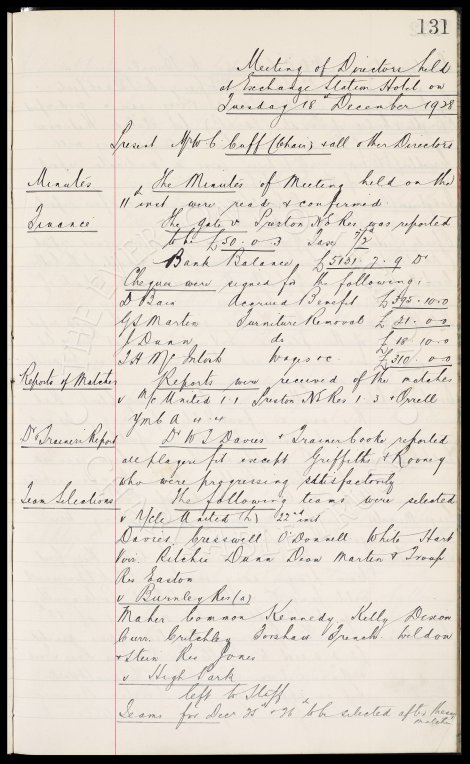 131
Meeting of Directors held
at Exchange Station Hotel on
Tuesday 18th December 1928
Present Mr W C Cuff (Chair) & all other Directors
Minutes
The Minutes of Meeting held on the
11th inst were read & confirmed.
Finance
The gate v Preston N E Res. was reported
to be £50. 0. 3 Tax 7/2d
Bank Balance £5131. 7. 9 Dr
Cheques were signed for the following:
D Bain Accrued Benefit £395. 10. 0
G S Martin Furniture Removal £ 21. 0 0
J Dunn do £ 18 10. 0
J A McIntosh Wages &c. £310. 0 0
Reports of Matches
Reports were received of the matches
v M/c United 1. 1. Preston N E Res 1. 3 & Orrell
Y M C A 4. 4
Drs & Trainers Report
Dr W J Davies & Trainer Cooke reported
all players fit except Griffiths & Rooney
who were progressing satisfactorily
Team Selections
The following teams were selected
v N/cle United (h) 22nd inst
Davies Cresswell O'Donnell White Hart
Virr. Ritchie Dunn Dean Martin & Troup
Res Easton
v Burnley Res (a)
Maher Common Kennedy Kelly Dixon
Curr. Critchley Forshaw French Weldon
& Stein Res Jones
v High Park
left to Staff
Teams for Decr 25th & 26th to be selected after these
matches